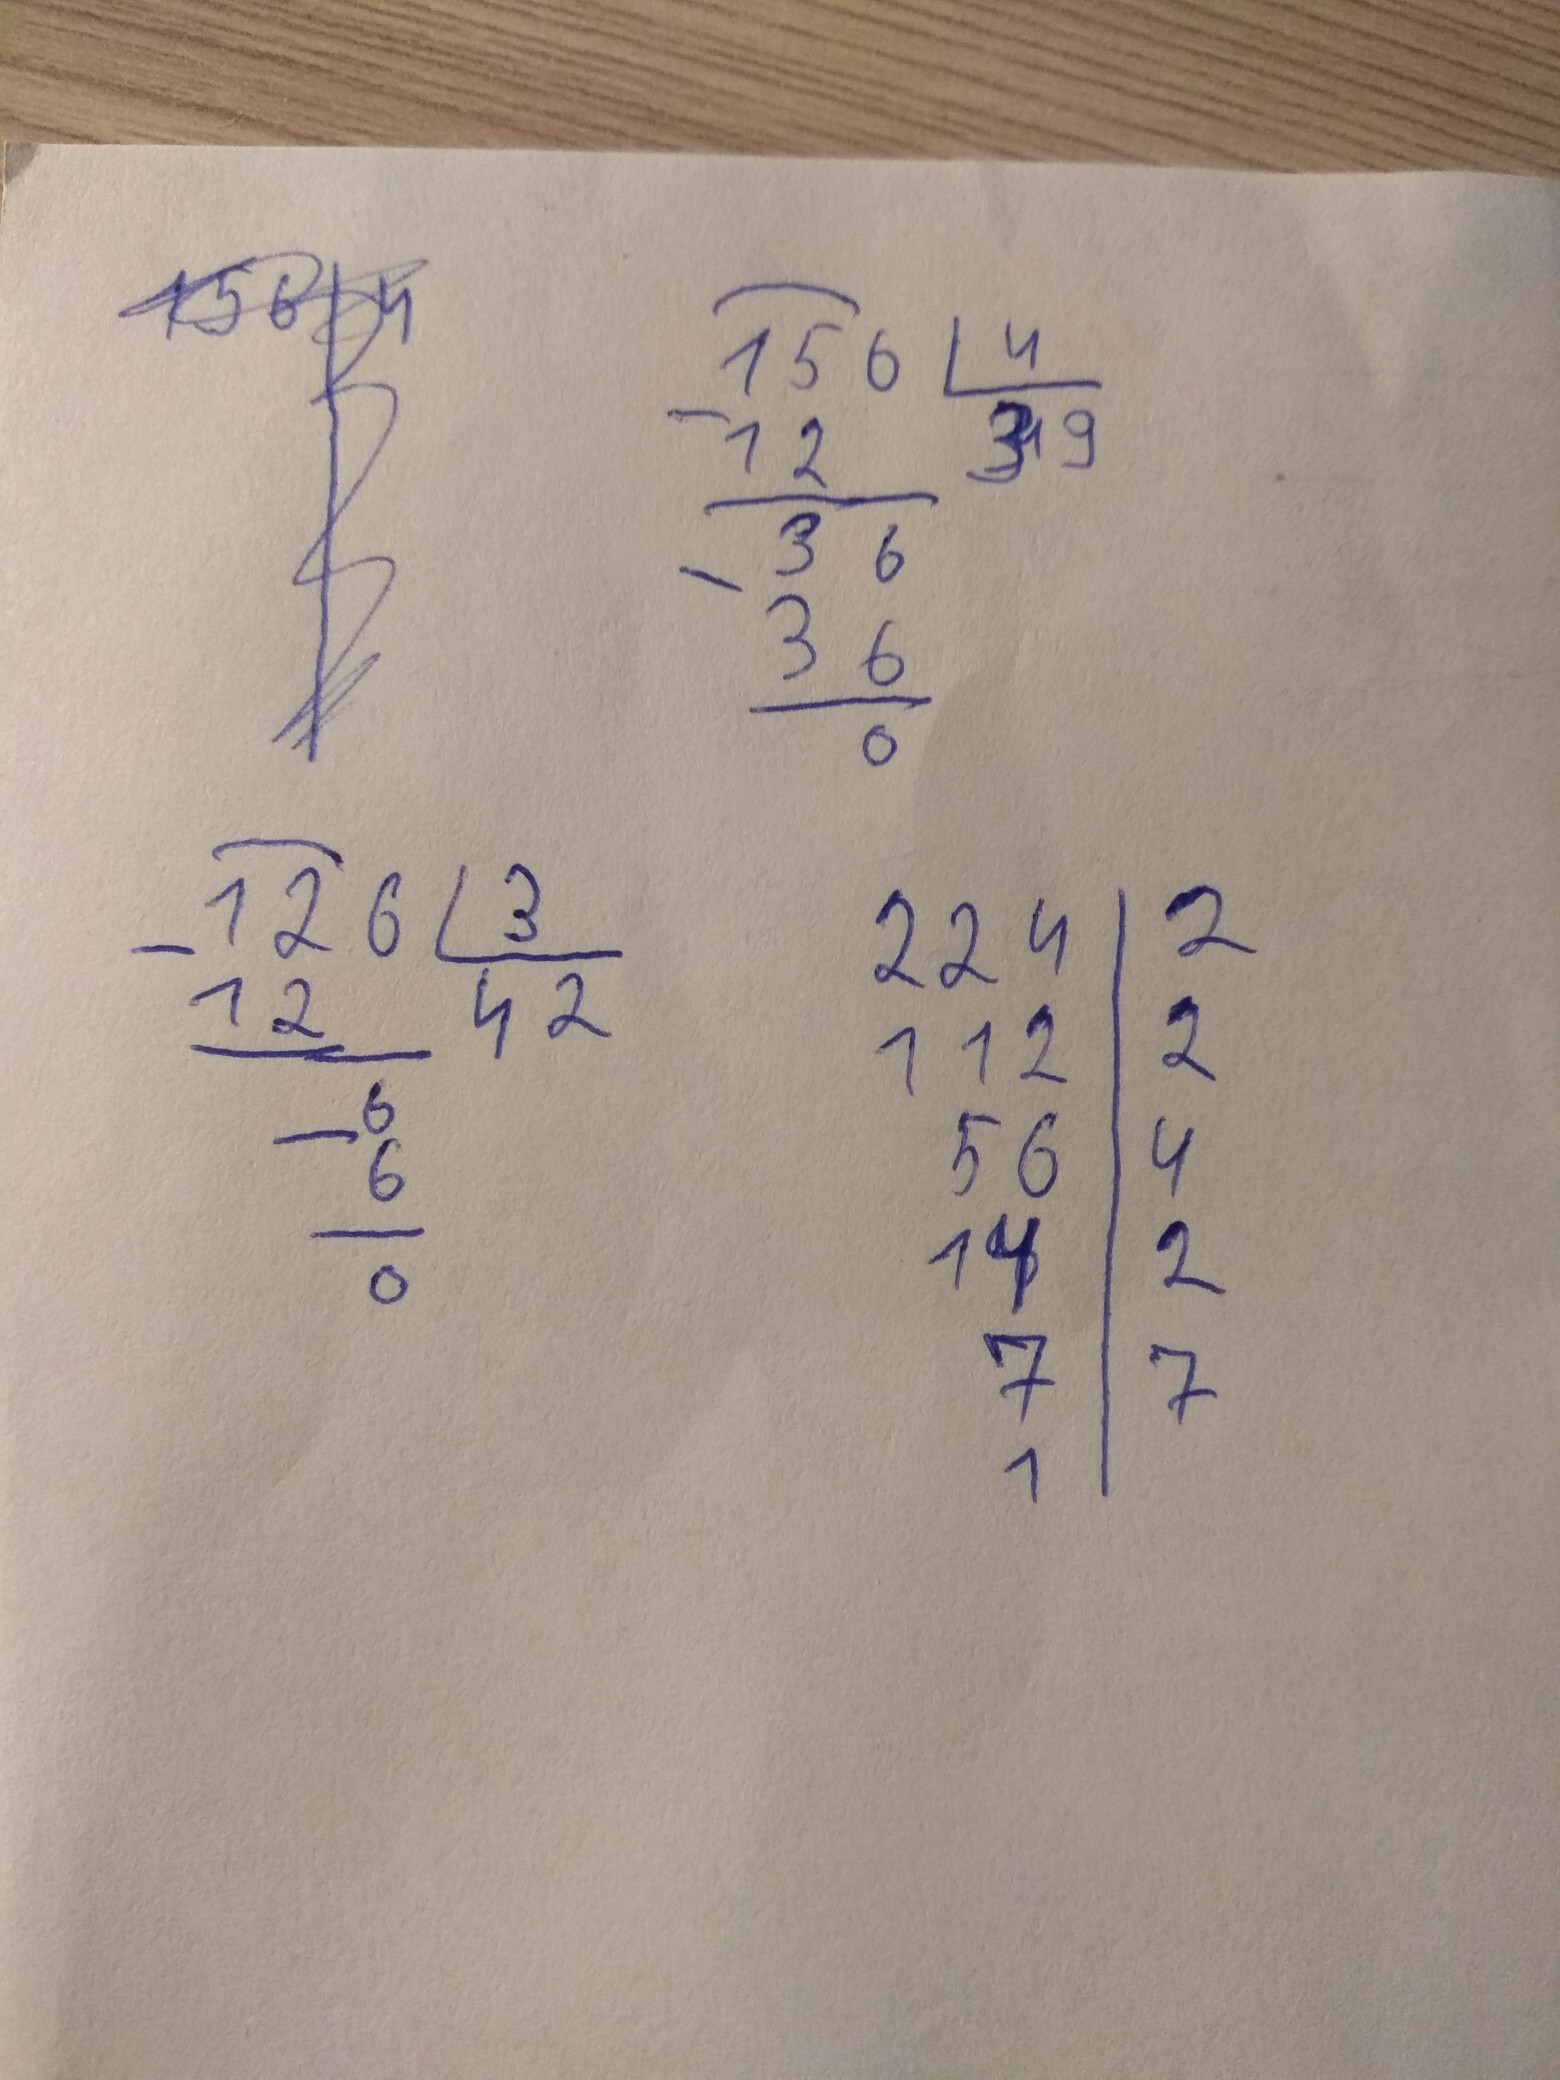 156 | 4
156 | 4
- 12 39
36
- 36
0
126 | 3
- 12 42
6
- 6
0
224 | 2
112 | 2
56 | 4
14 | 2
7 | 7
1 |